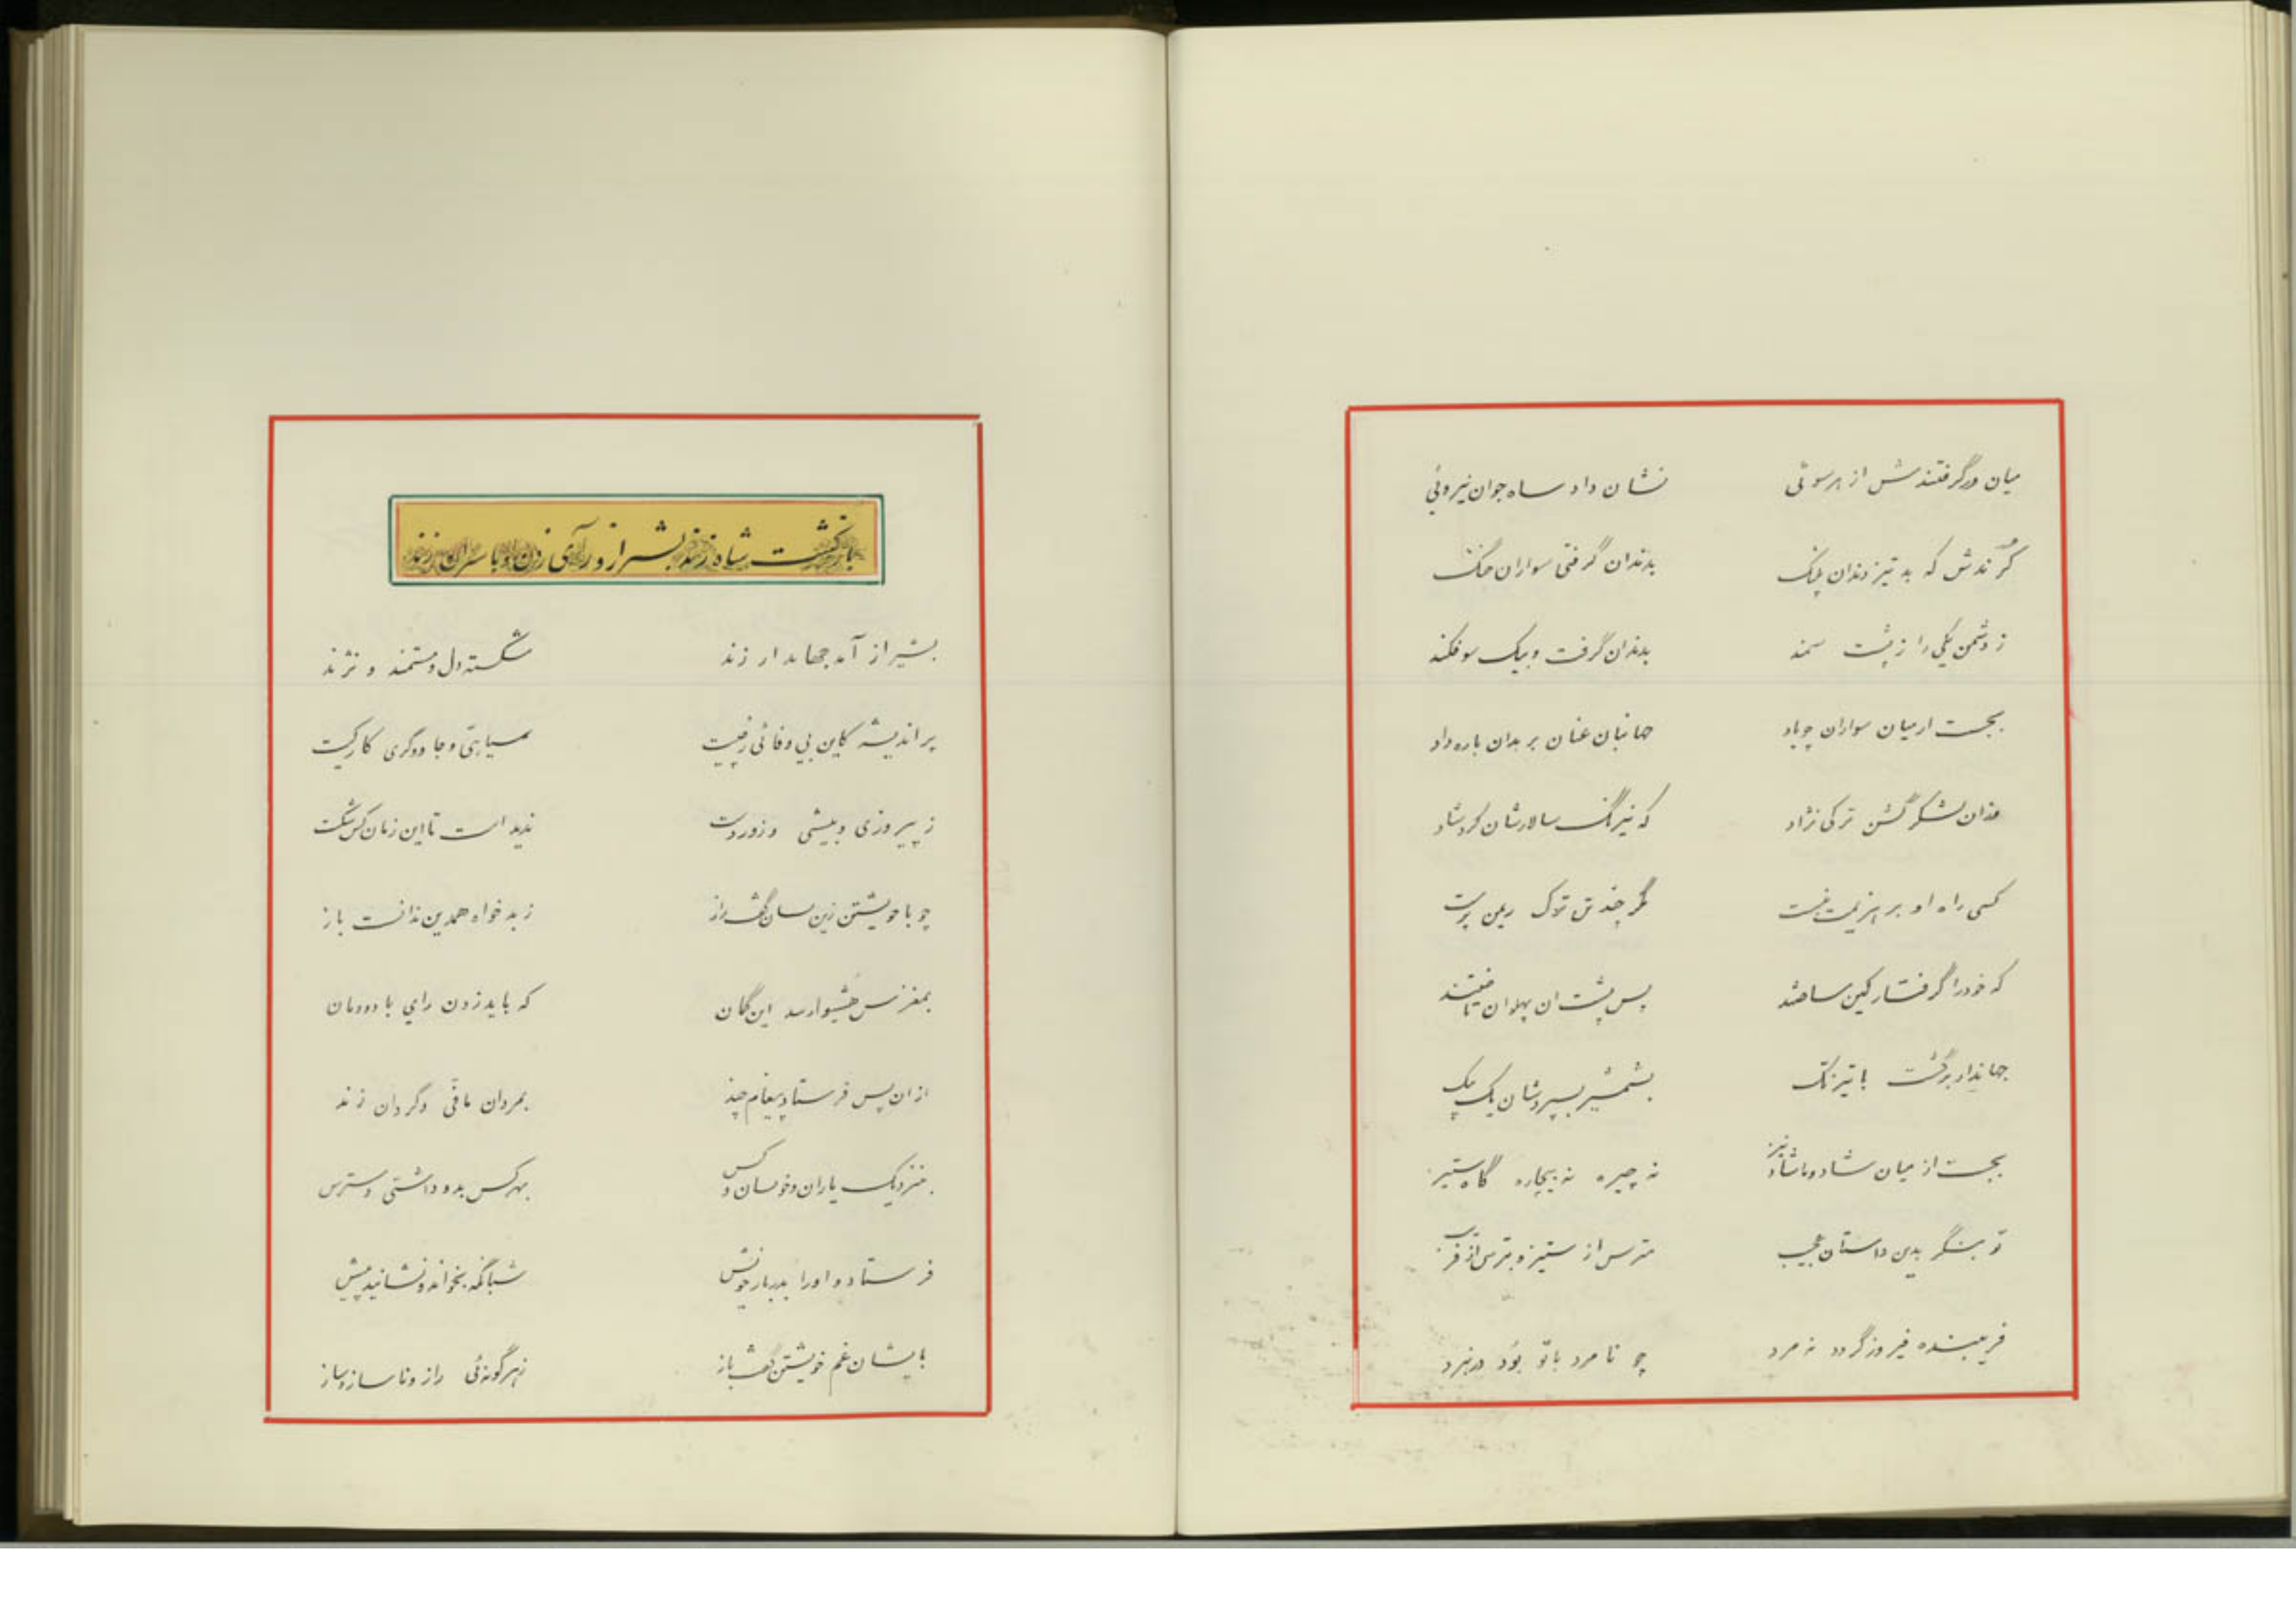 میان در گرفتندش از هر سوئی نشان داد شاه جوان نیروئی
کرندش که بد تیز دندان پلنگ بدندان گرفتی سواران جنگ
ز دشمن یکی را ز پشت سمند بدندان گرفت و بیک سو فکند
بجست از میان سواران چو باد جهانبان عنان بر بدان باره داد
از آن لشکر گشن ترکی نژاد که نیرنگ سالارشان کرد شاد
کسی راه او بر هزیمت نبست مگر چند تن ترک ریمن پرست
که خود را گرفتار کین ساختند پس پشت آن پهلوان تاختند
جهاندار برگشت با تیز تک بشمشیر بسپردشان یک بیک
بجست از میان شاد و ناشاد نیز نه چیره نه بیچاره گاه ستیز
تو بنگر بدین داستان عجیب مترس از ستیز و بترس از فریب
فریبنده فیروز گردد نه مرد چو نامرد با تو بود در نبرد
بازگشت شاه زند بشیراز و رآی زدن او با سران زند
بشیراز آمد جهاندار زند شکسته دل و مستمند و نژند
پر اندیشه کاین بی وفائی ز چیست سیاهی و جادوگری کار کیست
ز پیروزی و بیشی و زور دست ندید است تا این زمان کس شکست
چو با خویشتن زین سان گفت راز ز بدخواه همدین ندانست باز
بمغزش هشیوار شد این گمان که باید زدن رای با دودمان
از آن پس فرستاد پیغام چند بمردان مافی و گردان زند
بنزدیک یاران و خویشان و کس بهر کس بدو داشتی دسترس
فرستاد و او را بدربار خویش شبانگه بخواند و نشانید پیش
بایشان غم خویشتن گفت باز ز هر گونه‌ئی راز و ناساز و ساز